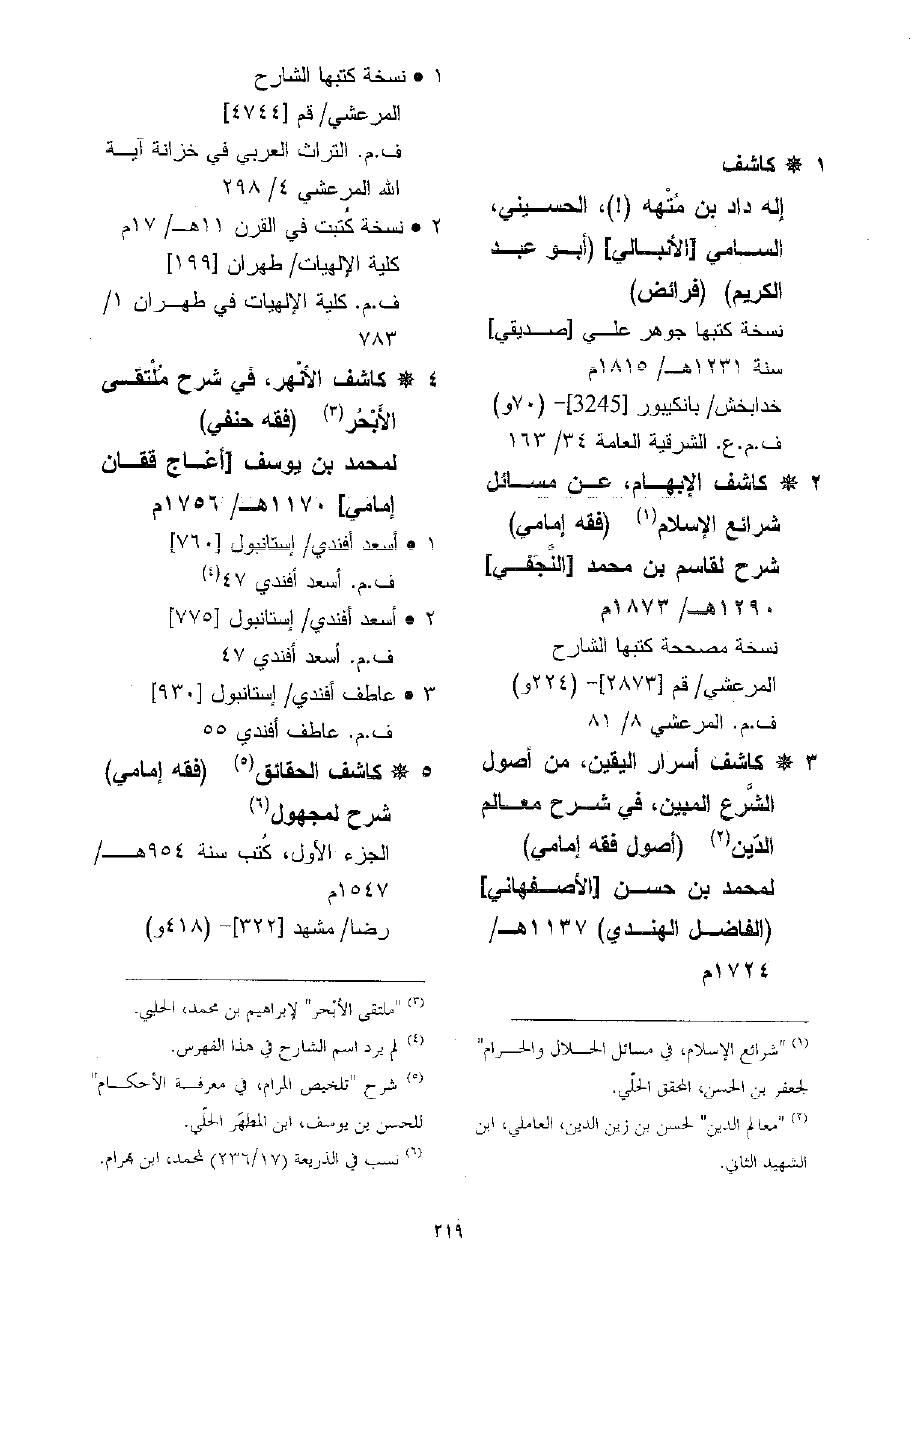 ١ * كاشف
إله داد بن مثْهه (!)، الحسيني،
السامي [الأنبالي] (أبو عبد
الكريم) (فرائض)
نسخة كتبها جوهر علي [صديقي]
سنة ١٢٣١هـ/ ١٨١٥م
خدابخش/ بانكيبور [3245]- (٧٠و)
ف.م.ع. الشرقية العامة ٣٤/ ١٦٣
٢ * كاشف الإبهام، عن مسائل
شرائع الإسلام(١) (فقه إمامي)
شرح لقاسم بن محمد [النَّجَفي]
١٢٩٠هـ/ ١٨٧٣م
نسخة مصححة كتبها الشارح
المرعشي/ قم [٢٨٧٣]- (٢٢٤و)
ف.م. المرعشي ٨/ ٨١
٣ * كاشف أسرار اليقين، من أصول
الشَّرع المبين، في شرح معالم
الدّين(٢) (أصول فقه إمامي)
لمحمد بن حسن [الأصفهاني]
(الفاضل الهندي) ١١٣٧هـ/
١٧٢٤م
(١) "شرائع الإسلام، في مسائل الحلال والحرام"
لجعفر بن الحسن، المحقق الحلّي.
(٢) "معالم الدين" لحسن بن زين الدين، العاملي، ابن
الشهيد الثاني.
١ • نسخة كتبها الشارح
المرعشي/ قم [٤٧٤٤]
ف.م. التراث العربي في خزانة آية
الله المرعشي ٤/ ٢٩٨
٢ • نسخة كُتبت في القرن ١١هـ/ ١٧م
كلية الإلهيات/ طهران [١٩٩]
ف.م. كلية الإلهيات في طهران ١/
٧٨٣
٤ * كاشف الأنْهر، في شرح مُلْتقى
الأَبْحُر(٣) (فقه حنفي)
لمحمد بن يوسف [أغاج ققان
إمامي] ١١٧٠هـ/ ١٧٥٦م
١ • أسعد أفندي/ إستانبول [٧٦٠]
ف.م. أسعد أفندي ٤٧(٤)
٢ • أسعد أفندي/ إستانبول [٧٧٥]
ف.م. أسعد أفندي ٤٧
٣ • عاطف أفندي/ إستانبول [٩٣٠]
ف.م. عاطف أفندي ٥٥
٥ * كاشف الحقائق(٥) (فقه إمامي)
شرح لمجهول(٦)
الجزء الأول، كُتب سنة ٩٥٤هـ/
١٥٤٧م
رضا/ مشهد [٣٢٢]- (٤١٨و)
(٣) "ملتقى الأبْحر" لإبراهيم بن محمد، الحلبي.
(٤) لم يرد اسم الشارح في هذا الفهرس.
(٥) شرح "تلخيص المرام، في معرفة الأحكام"
للحسن بن يوسف، ابن المطهَّر الحلّي.
(٦) نسب في الذريعة (٢٣٦/١٧) لمحمد، ابن بهرام.
٢١٩